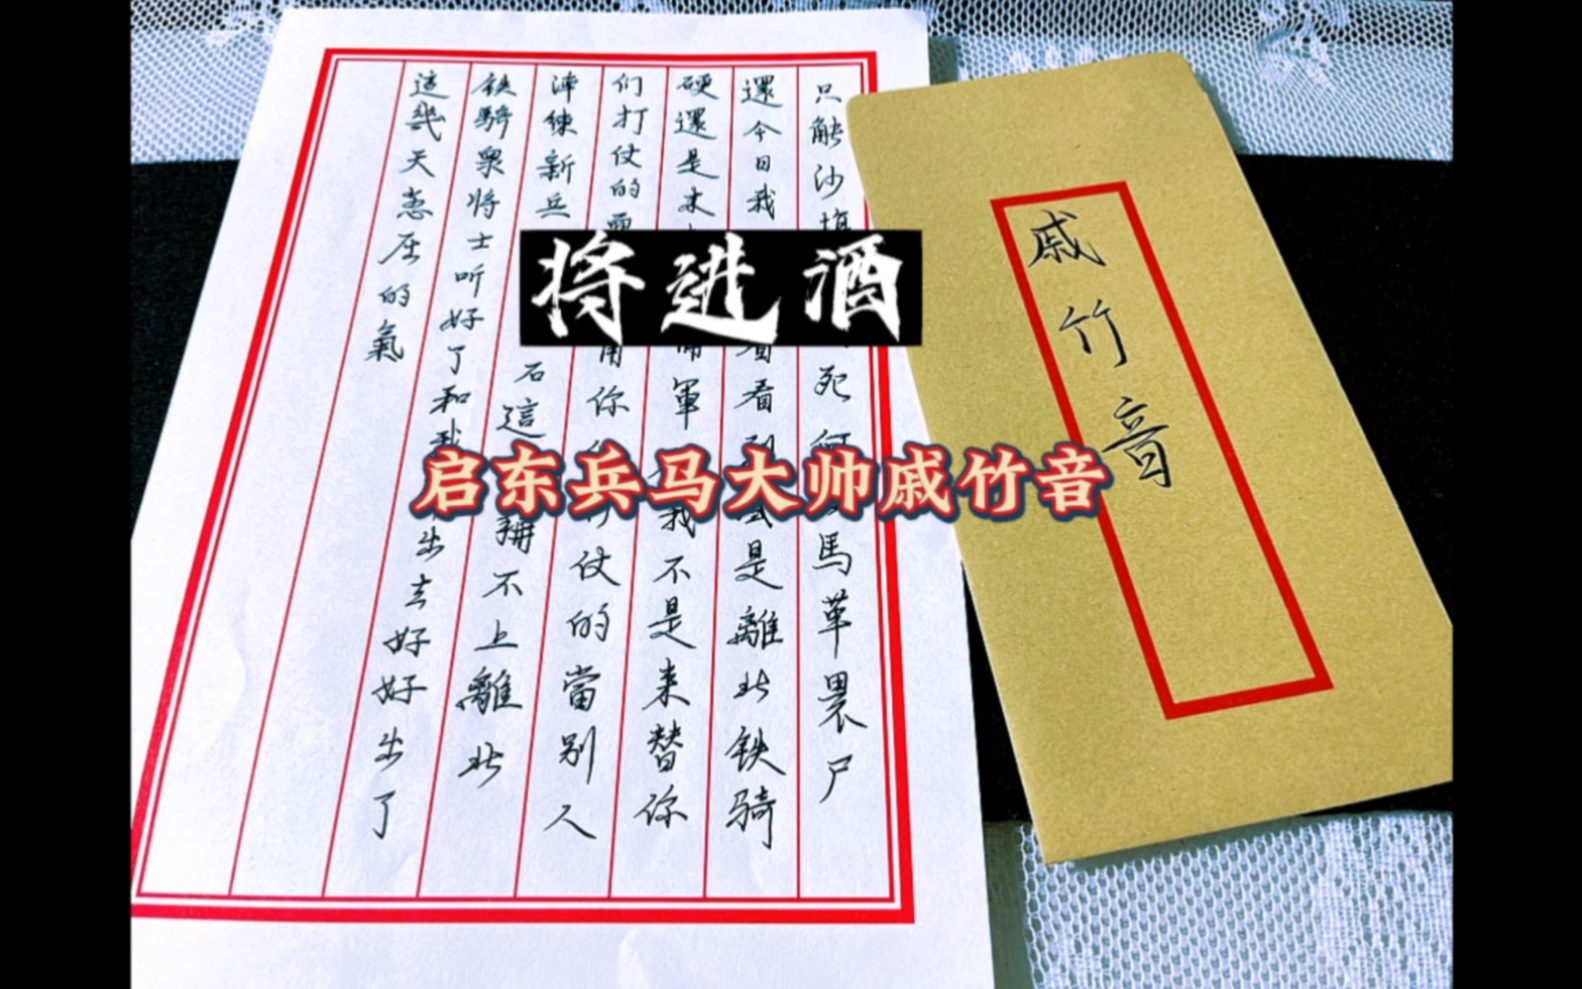 将进酒
启东兵马大帅戚竹音
只能沙 死 馬革裹尸
還今日我 看看到 是離北铁骑
硬還是 備軍 我不是来替你
们打仗的 用你 仗的當别人
練新兵 石這 不上離北
铁騎眾将士听好了和我 出去好好出了
這幾天憋屈的氣
戚竹音